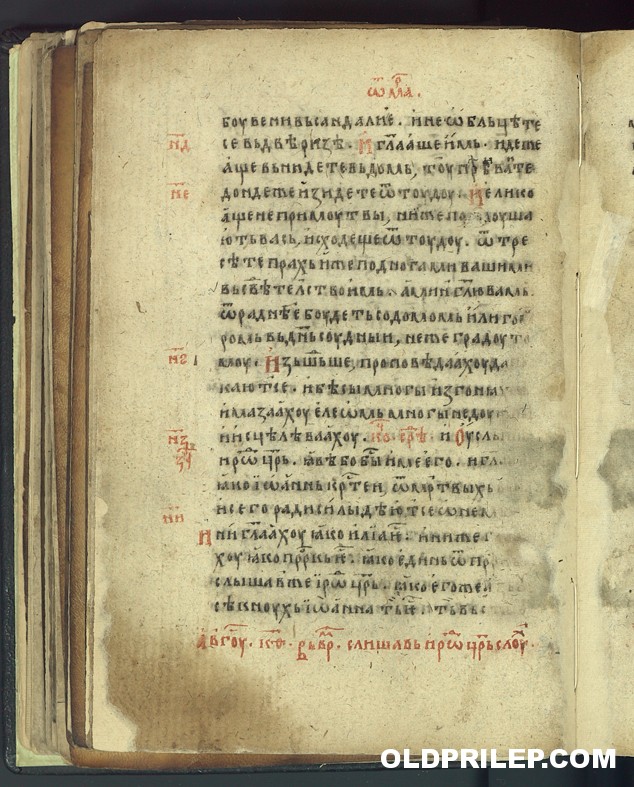 ѿ мр҃.
боувени вьсандалиѥ. и не ѡбльцѣте
нд се вьдвѣ ризѣ. И гл҃ааше имь. идеже
аще вьнидете вьдомь, тоу прѣбꙑваите
не дондеже изидете ѿтоудоу. И елико
аще не примоут вы, ниже послоуша
ють вась, исходеще ѿтоудоу. ѿтре
сѣте прахь иже подь ногами вашими
вьсвѣтелство имь. аминь гл҃ю вамь
ѿраднѣе боудеть содомомь или го
ромь вьдн҃ь соудныи, неже градоу то
нг моу. И изьшьше, проповѣдаахоу да
кають се. и бѣсы многы изгонꙗ
и мазаахоу елеѡмь многы недоу
нз и исцѣлѣваахоу. И оуслы
ирѡ цр҃ь. ꙗвѣ бо бы име его. и гл
ꙗко иѡаннь кр҃теи, ѿ мр҃твыхь
ни и сего ради силы дѣють се ѡ нем
Ини гл҃аахоу ꙗко илиꙗ. ини же г
хоу ꙗко прⷪ҇рокь. ꙗко единь ѿ пр
слышавже ирѡ цр҃ь. ꙗко егоже а
сѣкноухь иѡанна
авгоу. слишавь ирѡ цр҃ь слоу.
OLDPRILEP.COM